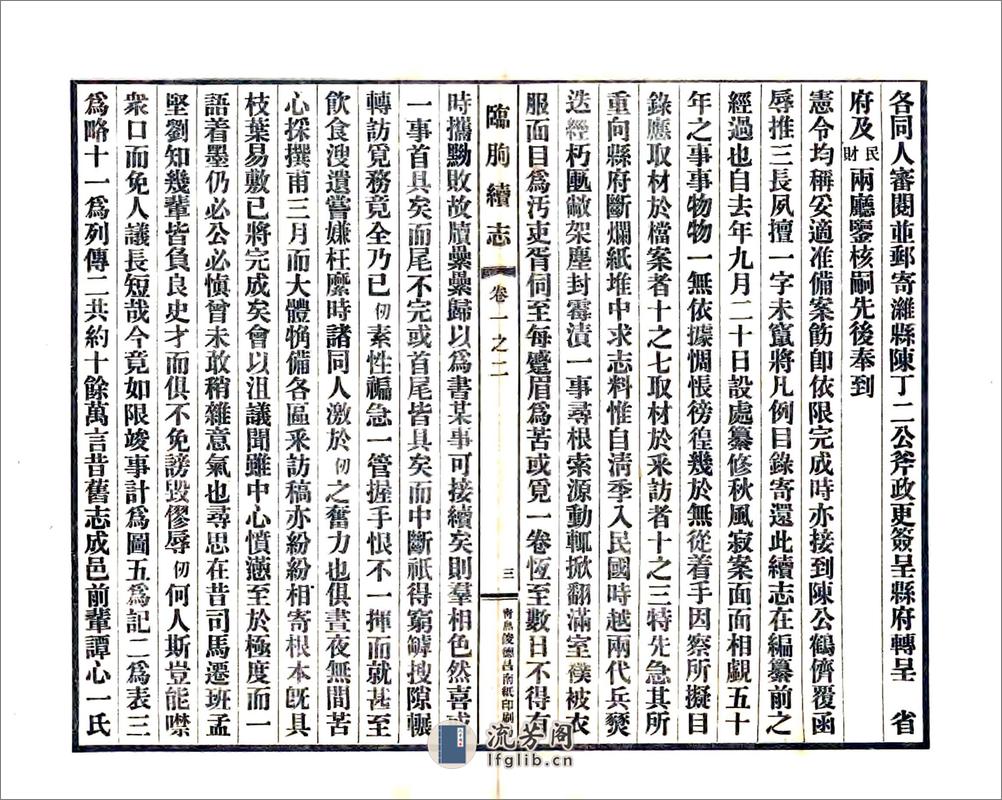 各同人審閱並郵寄濰縣陳丁二公斧政更簽呈縣府轉呈　省
府及民財兩廳鑒核嗣先後奉到
憲令均稱妥適准備案飭卽依限完成時亦接到陳公鶴儕覆函
辱推三長夙擅一字未竄將凡例目錄寄還此續志在編纂前之
經過也自去年九月二十日設處纂修秋風寂案面面相觀五十
年之事事物物一無依據惆悵徬徨幾於無從着手因察所擬目
錄應取材於檔案者十之七取材於釆訪者十之三特先急其所
重向縣府斷爛紙堆中求志料惟自淸季入民國時越兩代兵燹
迭經朽甌敝架塵封霉漬一事尋根索源動輒掀翻滿室襆被衣
服面目爲汚吏胥伺至每蹙眉爲苦或覓一卷恆至數日不得有
臨朐續志　卷一之二　三　靑島俊德昌南紙印刷
時攜黝敗故牘纍纍歸以爲書某事可接續矣則羣相色然喜或
一事首具矣而尾不完或首尾皆具矣而中斷祇得窮罅搜隙輾
轉訪覓務竟全乃已仞素性褊急一管握手恨不一揮而就甚至
飮食溲遺嘗嫌枉縻時諸同人激於仞之奮力也俱晝夜無間苦
心採撰甫三月而大體觕備各區釆訪稿亦紛紛相寄根本旣具
枝葉易敷已將完成矣會以沮議聞雖中心憤懣至於極度而一
語着墨仍必公必愼曾未敢稍雜意氣也尋思在昔司馬遷班孟
堅劉知幾輩皆負良史才而俱不免謗毀僇辱仞何人斯豈能噤
衆口而免人議長短哉今竟如限竣事計爲圖五爲記二爲表三
爲略十一爲列傳二共約十餘萬言昔舊志成邑前輩譚心一氏
流芳阁
lfglib.cn